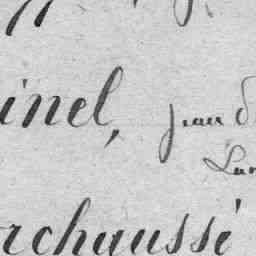 inel, jean d
Lar
rchaussé